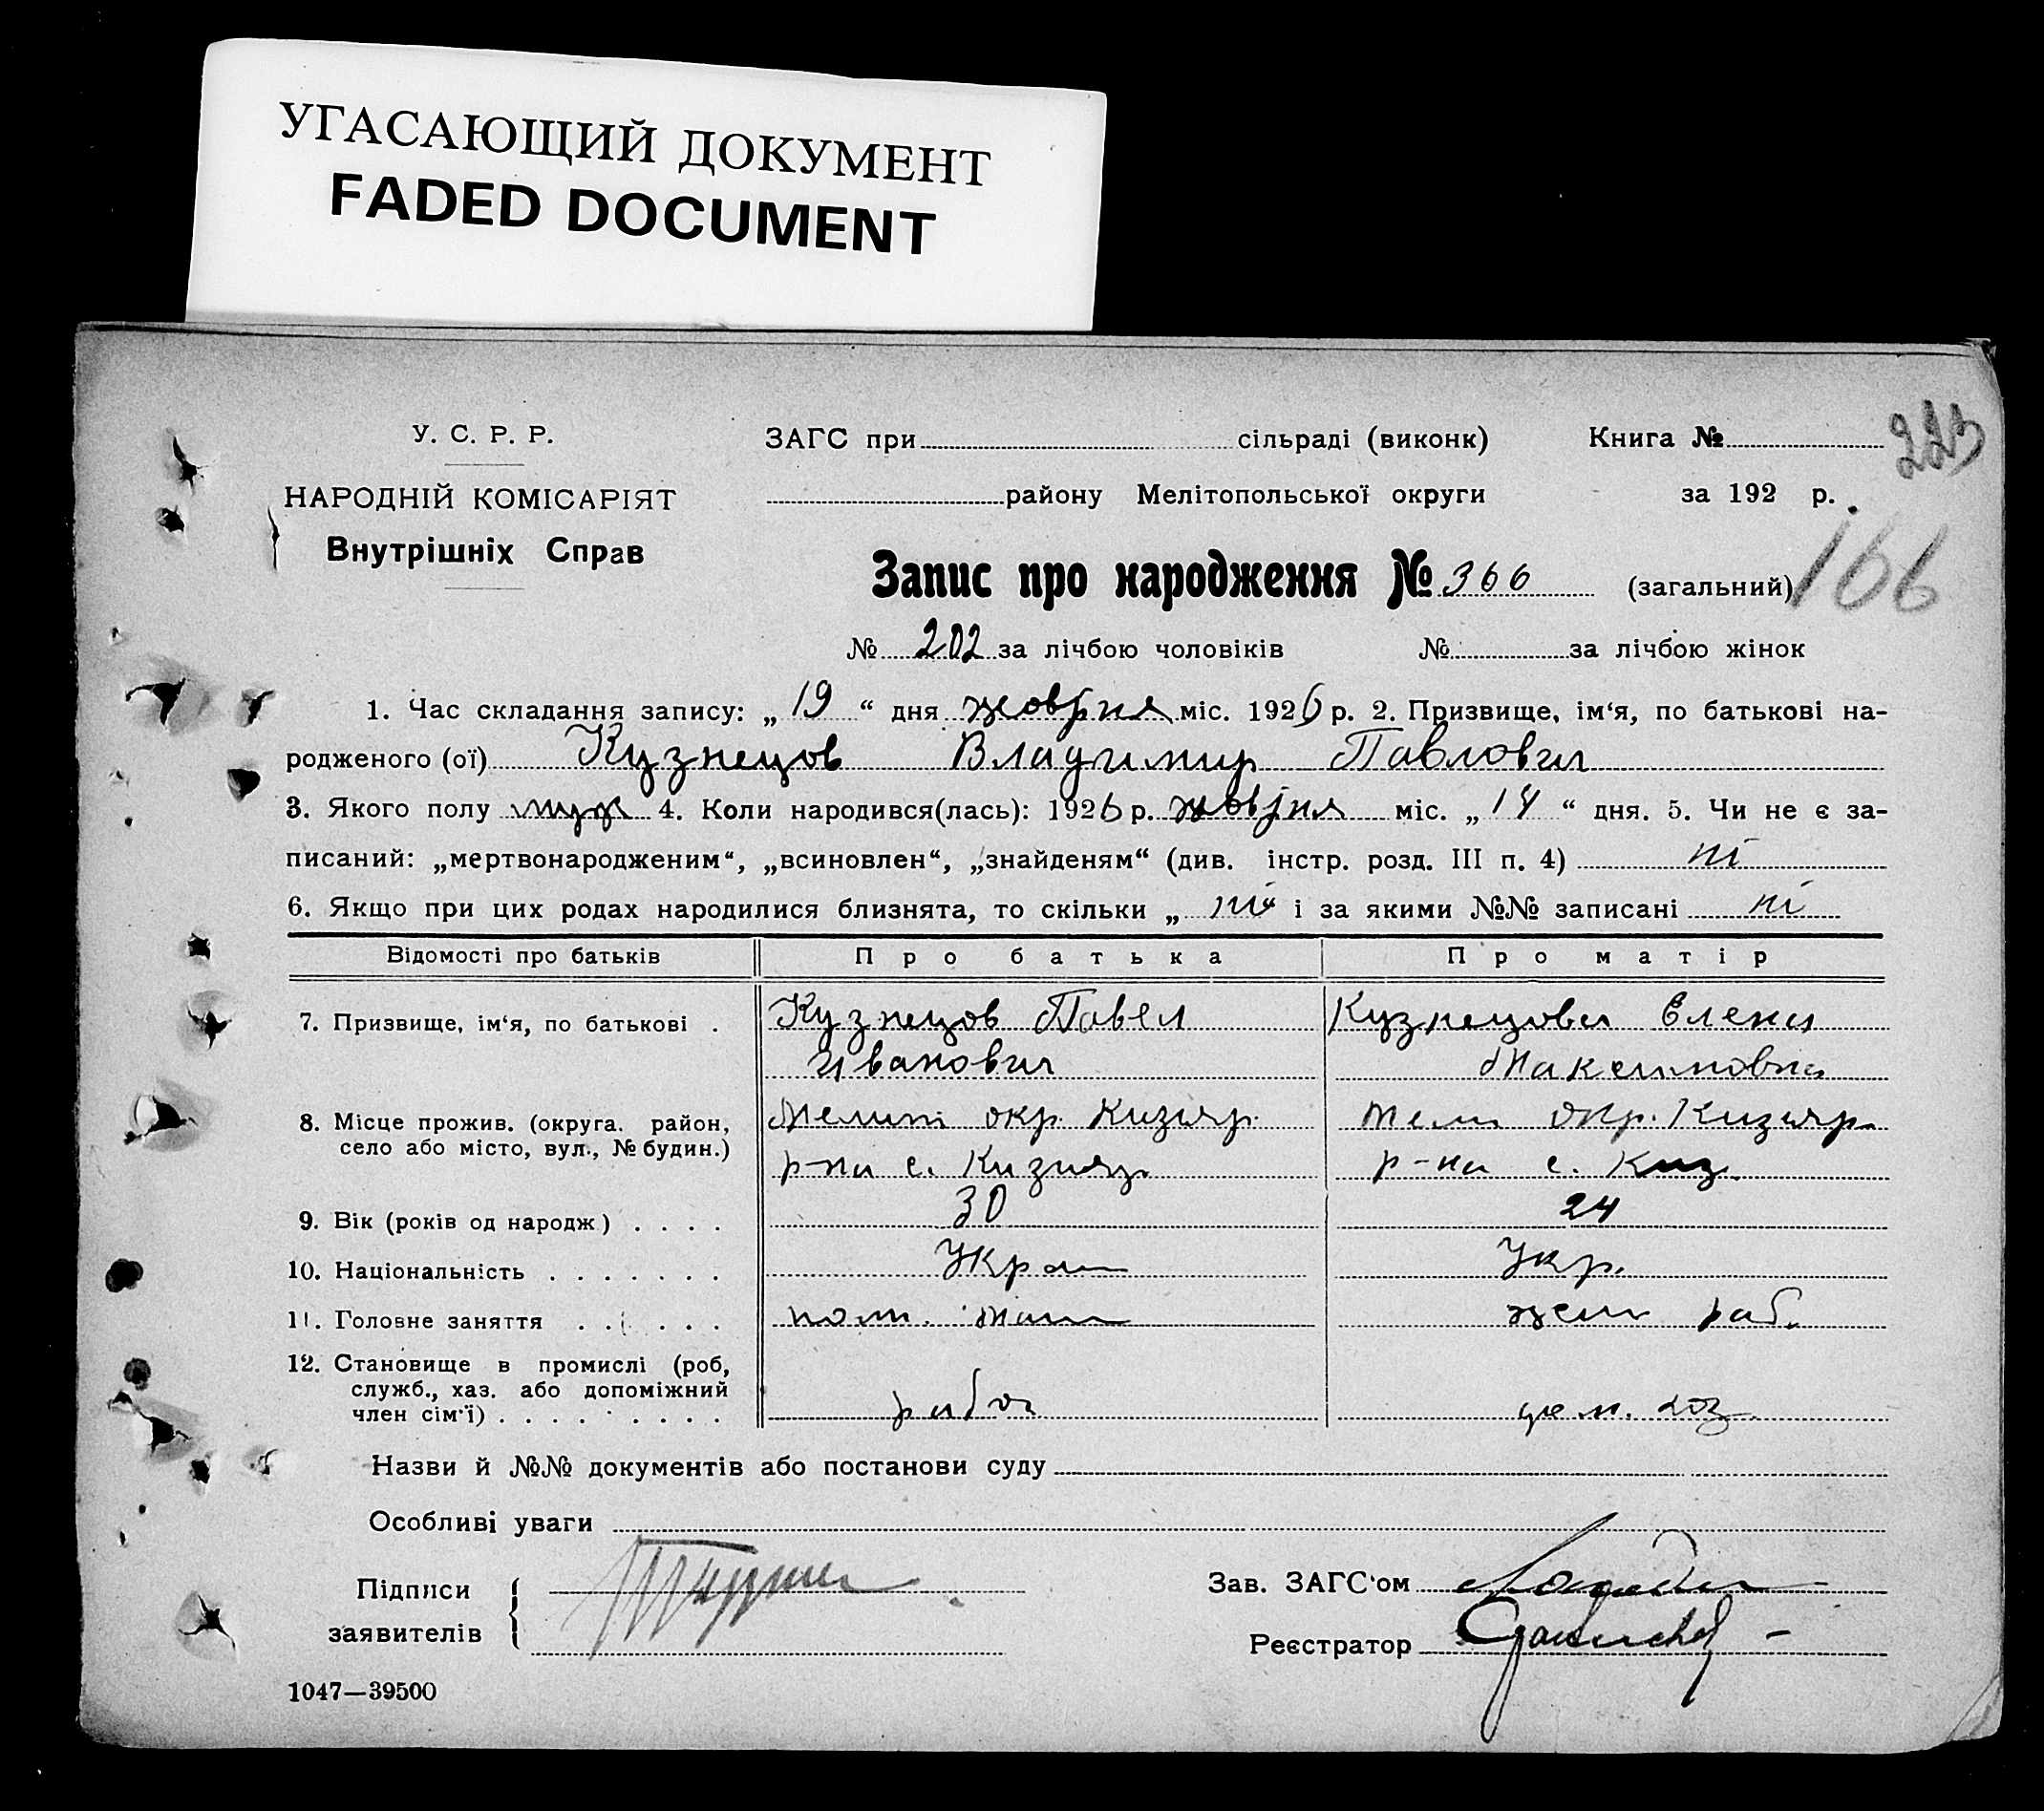 УГАСАЮЩИЙ ДОКУМЕНТ
FADED DOCUMENT
У. С. Р. Р.
НАРОДНІЙ КОМІСАРІЯТ
Внутрішніх Справ
ЗАГС при сільраді (виконк)
району Мелітопольської округи
Книга №
223
за 192 р.
166
Запис про народження № 366 (загальний)
№ 202 за лічбою чоловіків № за лічбою жінок
1. Час складання запису: „ 19 “ дня жовтня міс. 1926 р. 2. Призвище, ім‘я, по батькові на-
родженого (ої) Кузнецов Владимир Павлович
3. Якого полу муж 4. Коли народився(лась): 1926 р. жовтня міс. „ 14 “ дня. 5. Чи не є за-
писаний: „мертвонародженим“, „всиновлен“, „знайденям“ (див. інстр. розд. III п. 4) ні
6. Якщо при цих родах народилися близнята, то скільки „ ні“ і за якими №№ записані ні
Відомості про батьків Про батька Про матір
7. Призвище, ім‘я, по батькові . Кузнецов Павел Кузнецова Елена
Иванович Максимовна
8. Місце прожив. (округа. район, Мелит окр. Кизияр. Мели окр. Кизияр.
село або місто, вул., № будин.) р-на с. Кизияр. р-на с. Киз.
9. Вік (років од народж) . . . . 30 24
10. Національність . . . . . . . Укра Укр.
11. Головне заняття . . . . . . раб.
12. Становище в промислі (роб,
служб., хаз. або допоміжний
член сім‘ї) . . . . . . . . . рабоч дом. хоз
Назви й №№ документів або постанови суду
Особливі уваги
Підписи
заявителів
Зав. ЗАГС‘ом
Реєстратор
1047—39500